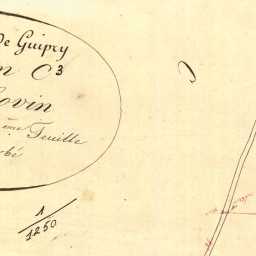 De Guipry
n C³
ovin
ème Feuille
bé
1/1250